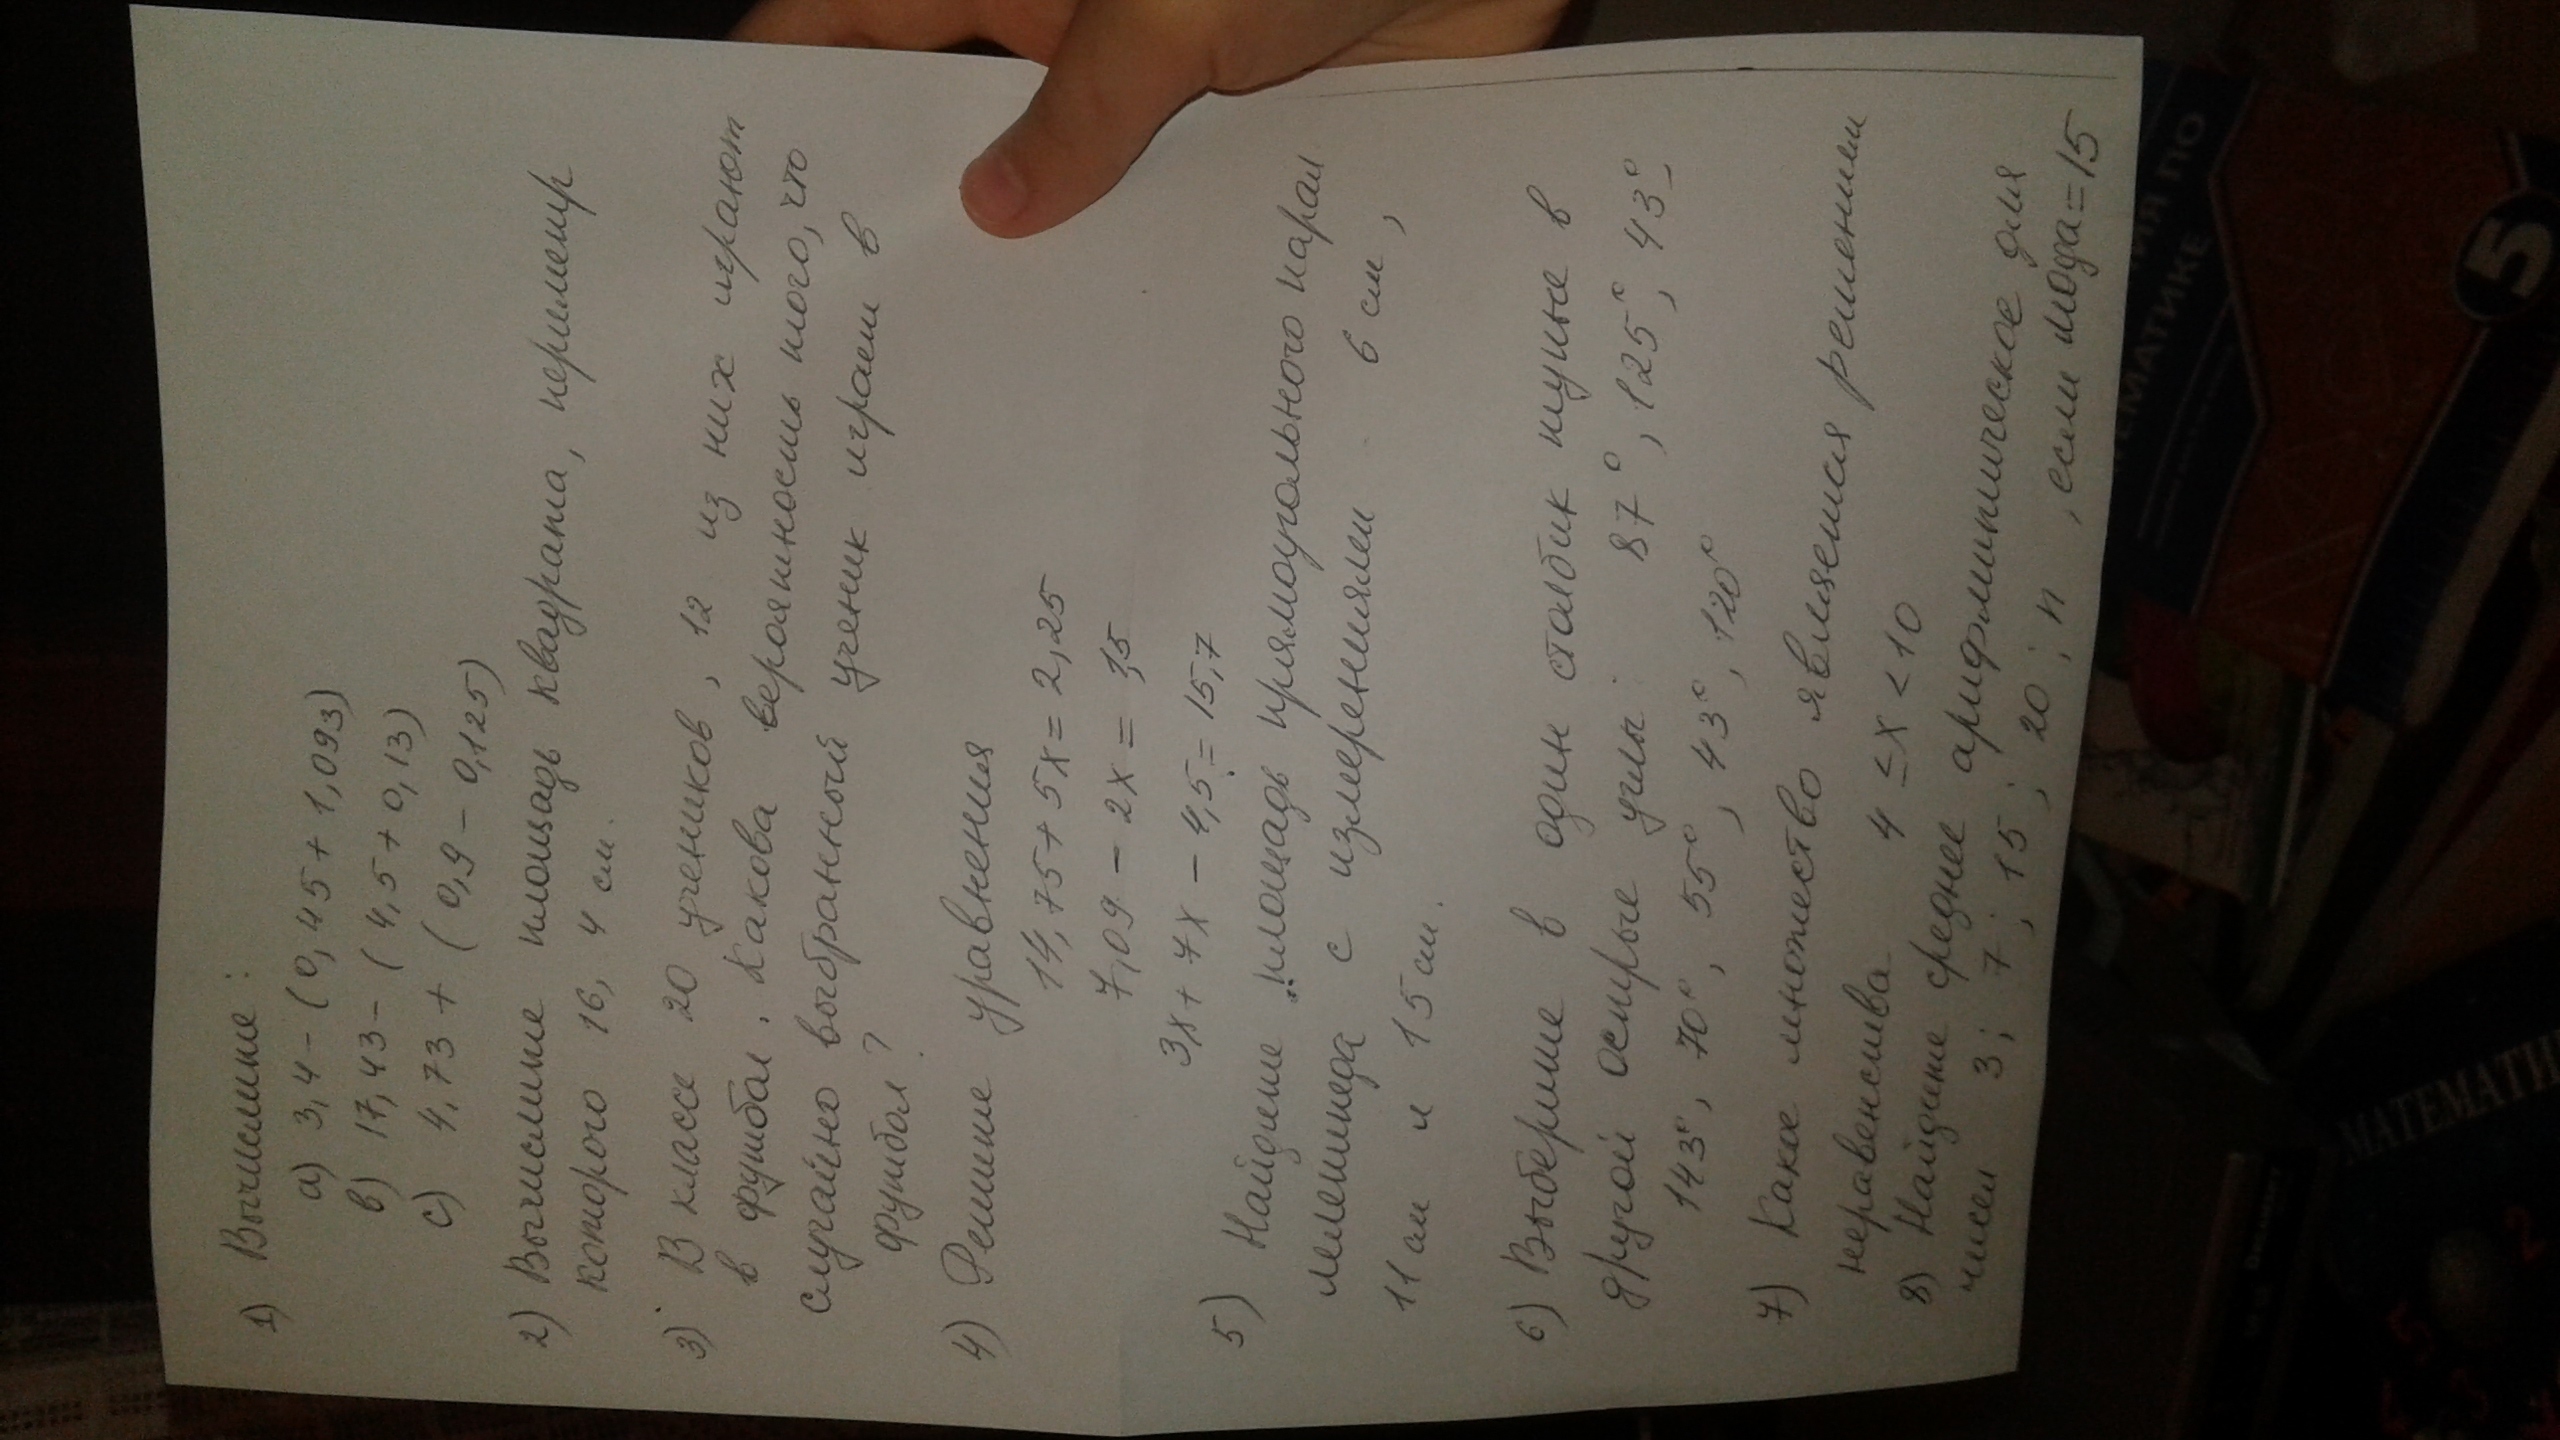 1) Вычислите:
а) 3,4 - (0,45 + 1,093)
в) 17,43 - (4,5 + 0,13)
с) 4,73 + (0,9 - 0,125)
2) Вычислите площадь квадрата, периметр
которого 16,4 см.
3) В классе 20 учеников, 12 из них играют
в футбол. Какова вероятность того, что
случайно выбранный ученик играет в
футбол?
4) Решите уравнения
14,75 + 5x = 2,25
7,09 - 2x = 1,5
3x + 7x - 4,5 = 15,7
5) Найдите площадь прямоугольного парал
лелепипеда с измерениями 6 см,
11 см и 15 см.
6) Выберите в один столбик тупые в
другой острые углы: 87°, 125°, 43°
143°, 70°, 55°, 43°, 120°
7) Какое множество является решением
неравенства 4 ≤ x < 10
8) Найдите среднее арифмитическое для
чисел 3; 7; 15; 20; n, если мода = 15
ПО
МАТЕМАТИКЕ
5
МАТЕМАТИ